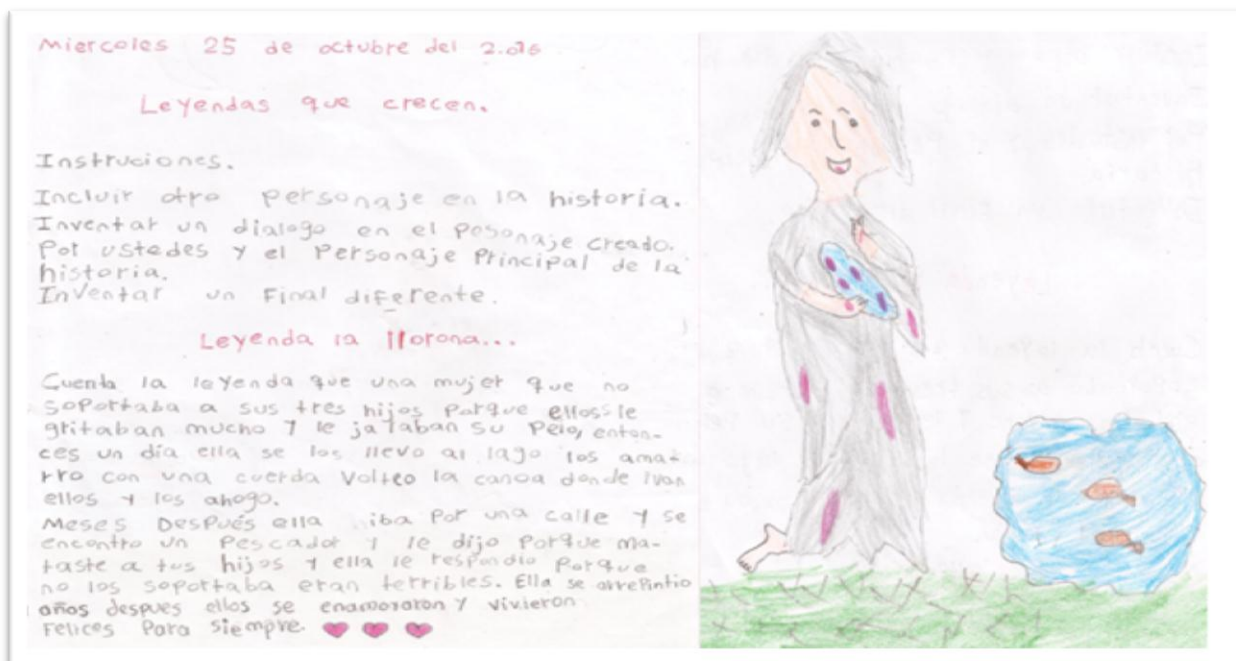 Miercoles 25 de octubre del 2.016
Leyendas que crecen.
Instruciones.
Incluir otro personaje en la historia.
Inventar un dialogo en el posonaje creado.
Por ustedes y el Personaje Principal de la
historia.
Inventar un Final diferente.
Leyenda la llorona...
Cuenta la leyenda que una mujer que no
soportaba a sus tres hijos porque ellos le
gritaban mucho y le jalaban su pelo, enton-
ces un día ella se los llevo al lago los ama-
rro con una cuerda volteo la canoa donde ivan
ellos y los ahogo.
Meses Después ella iba por una calle y se
encontro un pescador y le dijo porque ma-
taste a tus hijos y ella le respondio porque
no los soportaba eran terribles. Ella se arrepintio
años despues ellos se enamoraron y vivieron
Felices Para siempre.